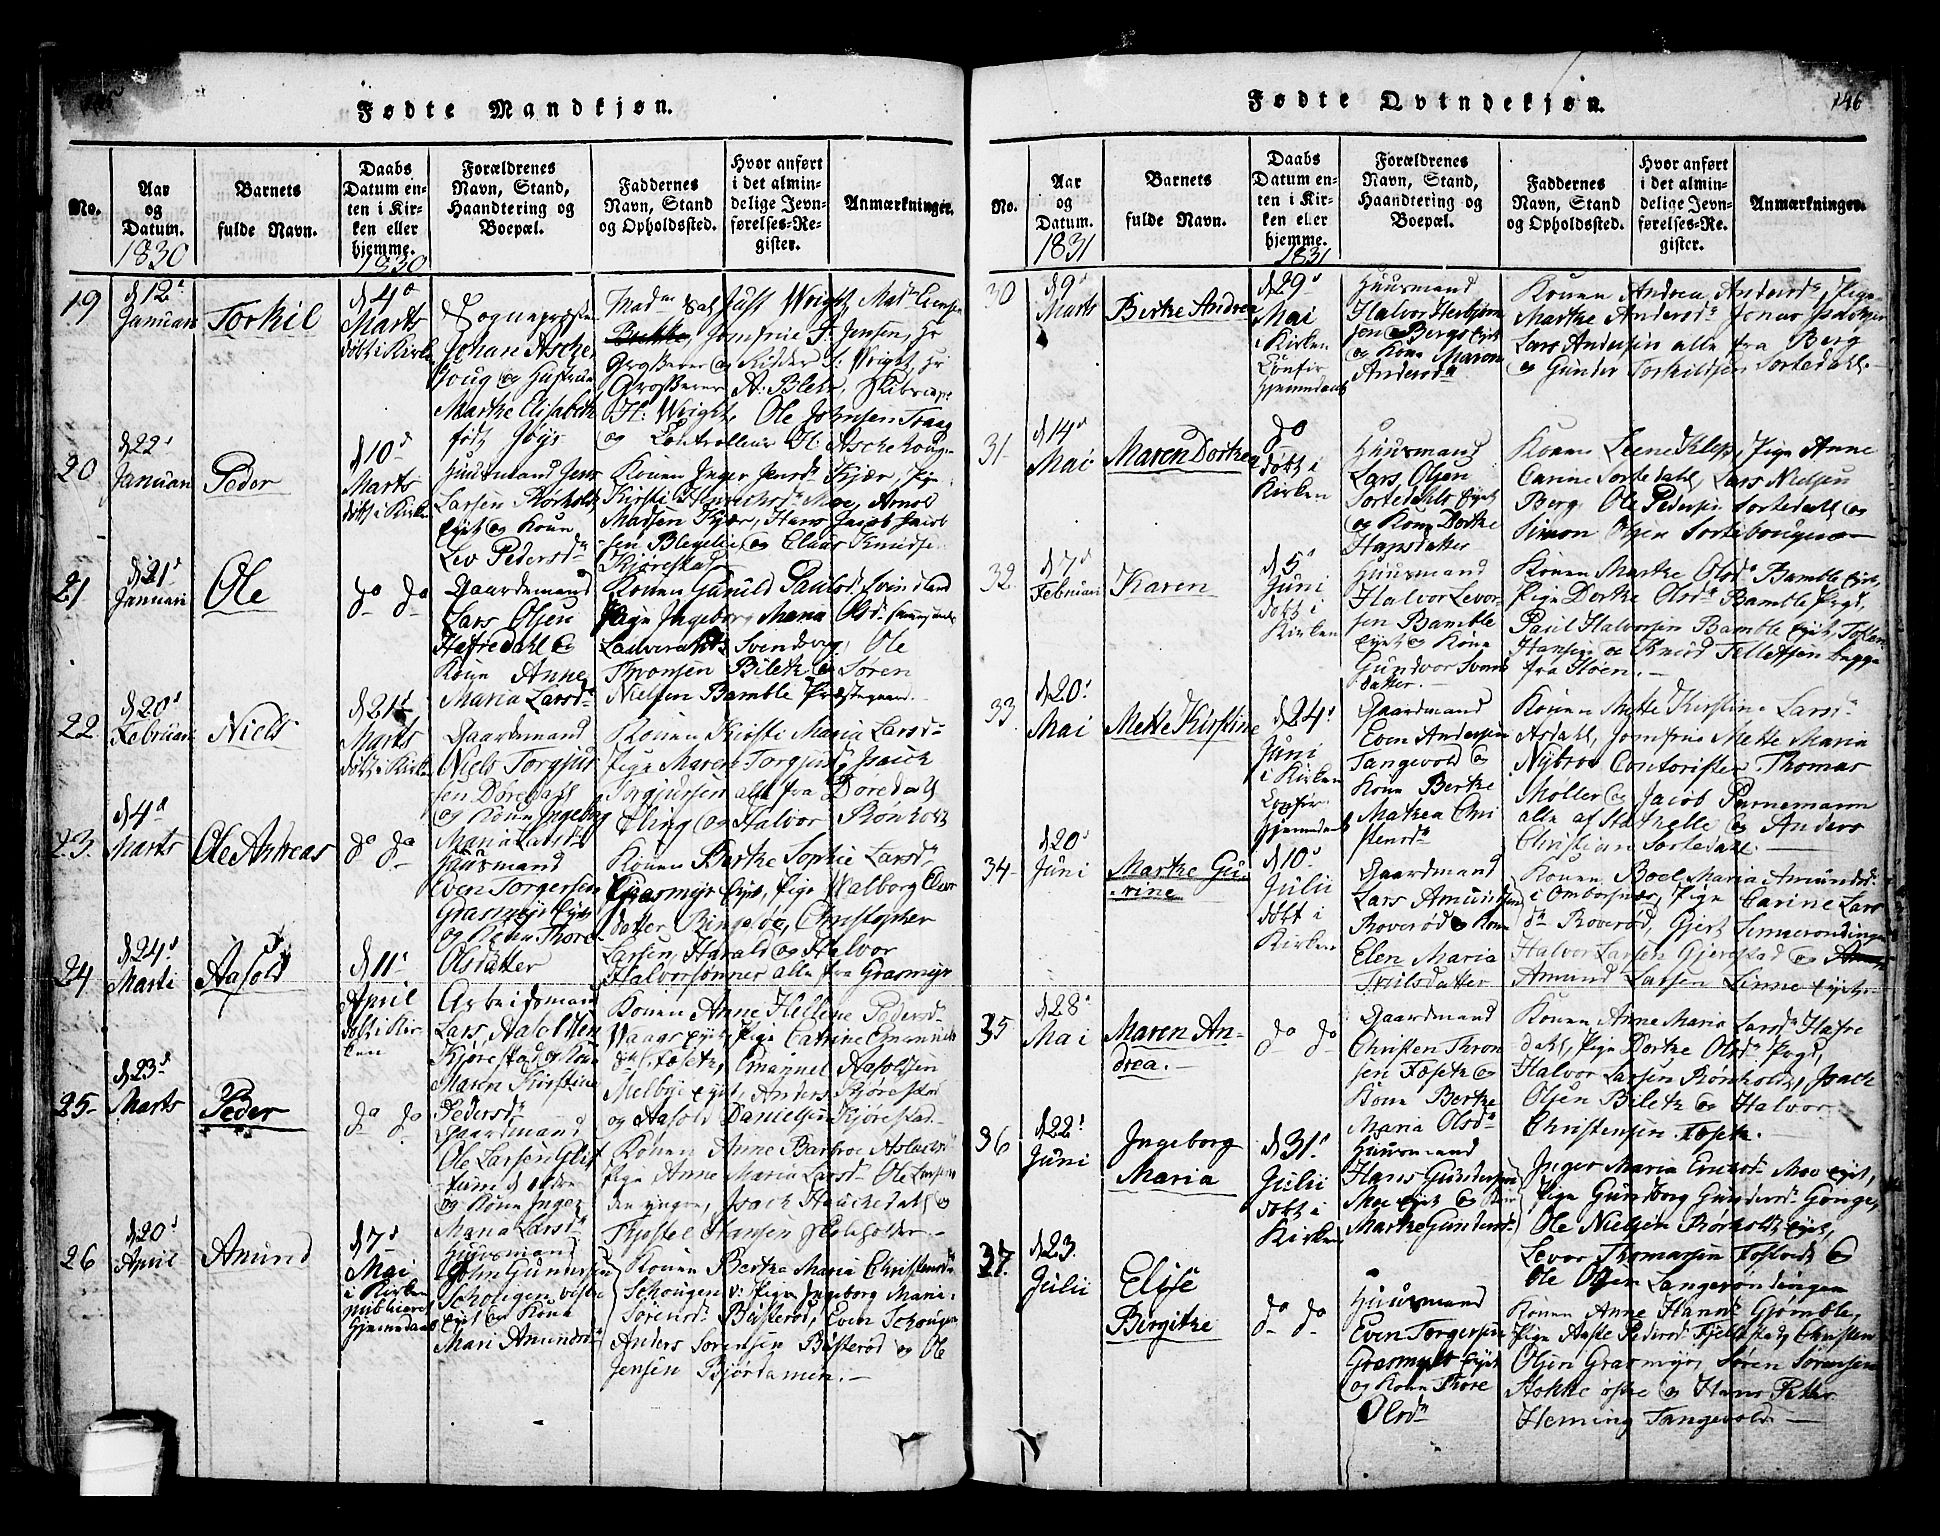 Fødte Mandkjøn.
No.
Aar
og
Datum.
1830
Barnets
fulde Navn.
Daabs
Datum en-
ten i Kir-
ken eller
hjemme.
1830
Forældrenes
Navn, Stand,
Haandtering og
Boepæl.
Faddernes
Navn, Stand
og Opholdssted.
Hvor anført
i det almin-
delige Jevn-
førelses-Re-
gister.
Anmærkninger.
19
d 12te
Januari
Torkil
d 4de
Marts
døbt i Kirken
Sognepræsten
Johan Asche-
houg og Hustrue
Marthe Elisabeth
født Jøys
Jomfrue F. Jensen, Hr
Grosserer og Ridder S. Wright, Hr
Grosserer A: Blehr,
H: Wright, Ole Johnsen Traag
og Controlleur H: Aschehoug
20
d 22
Januari
Peder
d 10de
Marts
døbt i Kirken
Huusmand Jens
Larsen Rørholt
Eyet og Kone
Liv Pedersdr
Konen Inger Jensdr Kjær, Pige
Kirsti Hendrichsdr Moe, Arnold
Madsen Kjær, Hans Jacob Jacob-
sen Blegelie og Claus Knudsen
Kjørestad
21
d 21de
Januari
Ole
do do
Gaardmand
Lars Olsen
Hafredahl og
Kone Anne
Maria Larsdr
Konen Gunild Paulsd. Svindland
Pige Ingeborg Maria Olsdr
Svendsvey, Ole
Thronsen Bilet og Søren
Nielsen Bamble Præstegaard.
22
d 20de
Februari
Niels
d 21de
Marts
døbt i Kirken
Gaardmand
Niels Torgjus-
sen Døredahl
og Kone Ingeborg
Maria Larsdr
Konen Kirsti Maria Larsd
Pige Maren Torgjusd, Isach
Torgjussen alle fra Døredahl
Elling og Halvor Rønholt
23.
d 4de
Marts
Ole Andreas
do do
Huusmand
Even Torgersen
Grasmyr Eyet
og Kone Thore
Olsdatter
Konen Berthe Sophie Larsd,
Grasmyr Eyet, Pige Walborg
datter Bingsøe, Christopher
Larsen, Harald og Halvor
Halvorsønner alle fra Grasmyr
24
d 24de
Marti
Aasold
d 11te
April
døbt i Kir-
ken
Arbeidsmand
Lars Aasoldsen
Kjørestad og Kone
Maren Kirstine
Pedersd
Konen Anne Hellene Pedersd
Waagø Eyet, Pige Catrine Emanuels
dr Fosset, Emanuel Aasoldsen
Melbye Eyet, Anders Kjørestad
og Aasold Danielsen Kjørestad
25
d 23de
Marts
Peder
do do
Gaardmand
Ole Larsen
og Kone Inger
Maria Larsdr
Pige Anne Maria Larsd, Ole Larsen
den yngre, Isach Hauchedahl og
26
d 20de
April
Amund
d 7de
Mai
i Kirken
publiceret
hjemmedaab
Huusmand
John Gunersen
Schougen
Eyet og Kone
Mari Amundsdr
Konen Berthe Maria Christensdr
Schougen, Pige Ingeborg Maria
Sørensdr Busterød, Even Schougen
Anders Sørensen Busterød og Ole
Jensen Bjørdamen.
Fødte Qvindekjøn.
146
No.
Aar
og
Datum.
1831
Barnets
fulde Navn.
Daabs
Datum en-
ten i Kir-
ken eller
hjemme.
1831
Forældrenes
Navn, Stand,
Haandtering og
Boepæl.
Faddernes
Navn, Stand
og Opholdssted.
Hvor anført
i det almin-
delige Jevn-
førelses-Re-
gister.
Anmærkninger.
30
d 9de
Marts
Berthe Andrea
d 29de
Mai
i Kirken
Confir.
hjemmedaab
Huusmand
Halvor Herbjørn-
sen Bergs Eyet
og Kone Maren
Andersdr
Konen Andrea Andersdr, Pige
Marthe Andersdr, Jonas Isachsen
Lars Andersen alle fra Berg
og Gunder Torkildsen Sortedahl.
31
d 14de
Mai
Maren Dorthea
do
døbt i
Kirken
Huusmand
Lars Olsen
Sortedahls Eyet
og Kone Dorthe
Hansdatter
Konen Leene Klep, Pige Anne
Carine Sortedahl, Lars Nielsen
Berg, Ole Pedersen Sortedahl og
Simon Olsen Sortebougen
32
d 7de
Februari
Karen
d 5te
Juni
døbt i
Kirken
Huusmand
Halvor Levor-
sen Bamble
Eyet og Kone
Gundvor Svens-
datter.
Konen Marthe Olsdr Bamble Eyet,
Pige Dorthe Olsdr Bamble Præsgd,
Paul Halvorsen Bamble Eyet,
Hansen og Knud Tellefsen begge
fra Stoen.
33
d 20de
Mai
Mette Kirstine
d 24de
Juni
i Kirken
Confir.
hjemmedaab
Gaardmand
Even Andersen
Tangevold og
Kone Berthe
Mathea Chri-
stensdr
Konen Mette Kirstine Larsdr
Asdahl, Jomfrue Mette Maria
Nybroe, Contoristen Thomas
Møller og Jacob Parnemann
alle af Stathelle og Anders
Christian Sortedahl.
34
d 20de
Juni
Marthe Gu-
rine
d 10de
Julii
døbt i
Kirken
Gaardmand
Lars Amundsen
Roverød og Kone
Elen Maria
Troilsdatter
Konen Boel Maria Amundsd.
i Ombordsnæs, Pige Carine Lars
dr Roverød, Gjert Linnerondingen
Halvor Larsen Gjerestad og
Amund Larsen Linne Eyet
35
d 28de
Mai
Maren An-
drea.
do do
Gaardmand
Christen Thron-
sen Fosset og
Kone Berthe
Maria Olsdr
Konen Anne Maria Larsdr Hafre-
dahl, Pige Dorthe Olsdr Præsgd,
Halvor Larsen Rønholt, Isach
Olsen Bilet og Halvor
Christensen Fosset.
36
d 22de
Juni
Ingeborg
Maria
d 31te
Julii
døbt i
Kirken
Huusmand
Hans Gundersen
Moe Eyet og Kone
Marthe Gundersdr
Inger Maria Ericsdr Moe Eyet,
Pige Gundborg Gundersdr Gonge,
Ole Nielsen Rørholt Eyet,
Levor Thomassen Fosvold og
Ole Olsen Langerondingen
37.
d 23.
Julii
Elise
Bergithe
do do
Huusmand
Even Torgersen
Grasmyr Eyet
og Kone Thore
Olsdr
Konen Anne Hansdr Gromble,
Pige Aaste Pedersdr Fjellstad, Christen
Olsen Grasmyr, Søren Sørensen
Aakke østre og Hans Petter
Heming Tangevold.